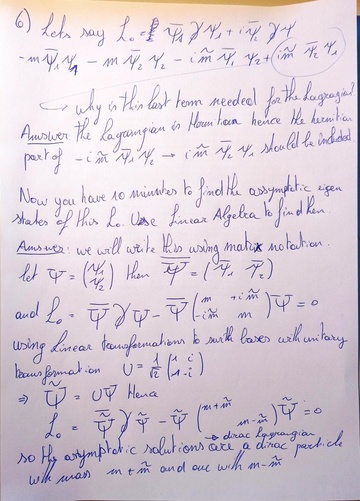 6) Lets say L₀ = i Ψ̄₁ ∂̸ Ψ₁ + i Ψ̄₂ ∂̸ Ψ₂
- m Ψ̄₁ Ψ₁ - m Ψ̄₂ Ψ₂ - i m̃ Ψ̄₁ Ψ₂ + i m̃ Ψ̄₂ Ψ₁
↳ why is this last term needed for the Lagrangian
Answer the Lagrangian is Hermitian hence the hermitian
part of - i m̃ Ψ̄₁ Ψ₂ → i m̃ Ψ̄₂ Ψ₁ should be included
Now you have 10 minutes to find the assymptotic eigen
states of this L₀. Use Linear Algebra to find them.
Answer: we will write this using matrix notation.
let Ψ = (Ψ₁ Ψ₂) then Ψ̄ = (Ψ̄₁ Ψ̄₂)
and L₀ = Ψ̄ ∂̸ Ψ - Ψ̄ (m +i m̃ -i m̃ m) Ψ = 0
using Linear transformations to swith bases with unitary
transformation U = 1/√2 (1 i 1 -i)
⇒ Ψ̃ = UΨ Hence
L₀ = Ψ̃̄ ∂̸ Ψ̃ - Ψ̃̄ (m+m̃ m-m̃) Ψ̃ = 0
→ dirac Lagrangian
so the asymptotic solutions are a dirac particle
with mass m + m̃ and one with m - m̃